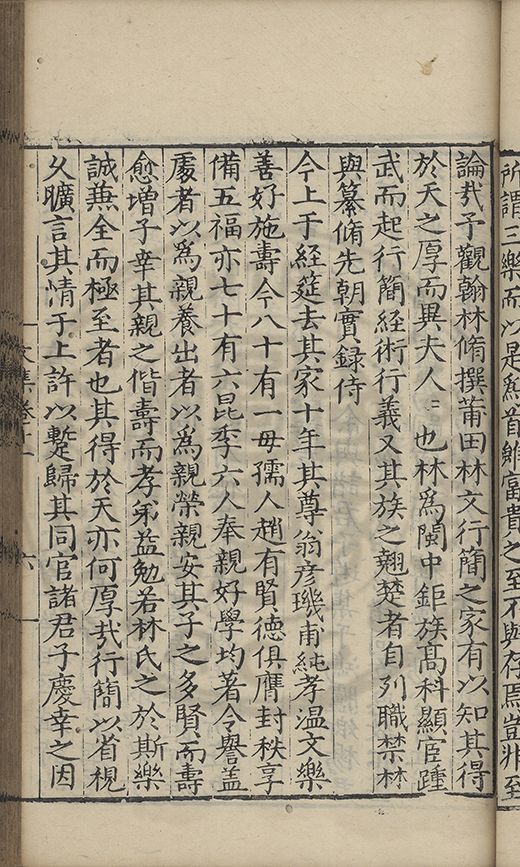 所謂三樂而以是爲首雖富貴之至不與存焉豈非至
論㢤予觀翰林脩撰莆田林文行簡之家有以知其得
於天之厚而異夫人〻也林爲閩中鉅族髙科顯宦踵
武而起行簡經術行義又其族之翹楚者自列職禁林
與纂脩先朝實録侍
今上于經筵去其家十年其尊翁彦璣甫純孝温文樂
善好施壽今八十有一毋孺人趙有賢德俱膺封秩享
備五福亦七十有六昆季六人奉親好學均著令譽蓋
䖏者以爲親養出者以爲親榮親安其子之多賢而壽
愈增子幸其親之偕壽而孝弟益勉若林氏之於斯樂
誠兼全而極至者也其得於天亦何厚㢤行簡以省視
乆曠言其情于上許以蹔歸其同官諸君子慶幸之因
文集卷十一
六